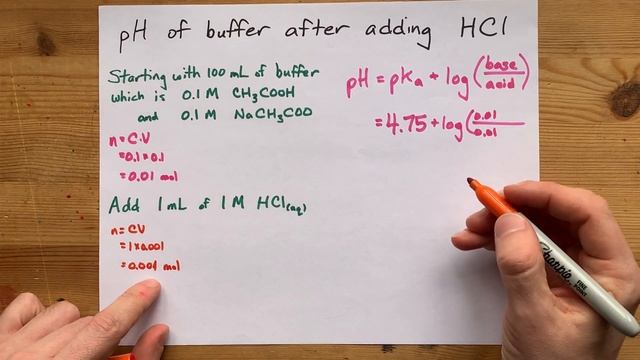 pH of buffer after adding HCl
Starting with 100 mL of buffer
which is 0.1 M CH₃COOH
and 0.1 M NaCH₃COO
n = C·V
= 0.1 × 0.1
= 0.01 mol
Add 1 mL of 1 M HCl(aq)
n = CV
= 1 × 0.001
= 0.001 mol
pH = pKa + log (base/acid)
= 4.75 + log (0.01/0.01
Sharpie
FINE POINT